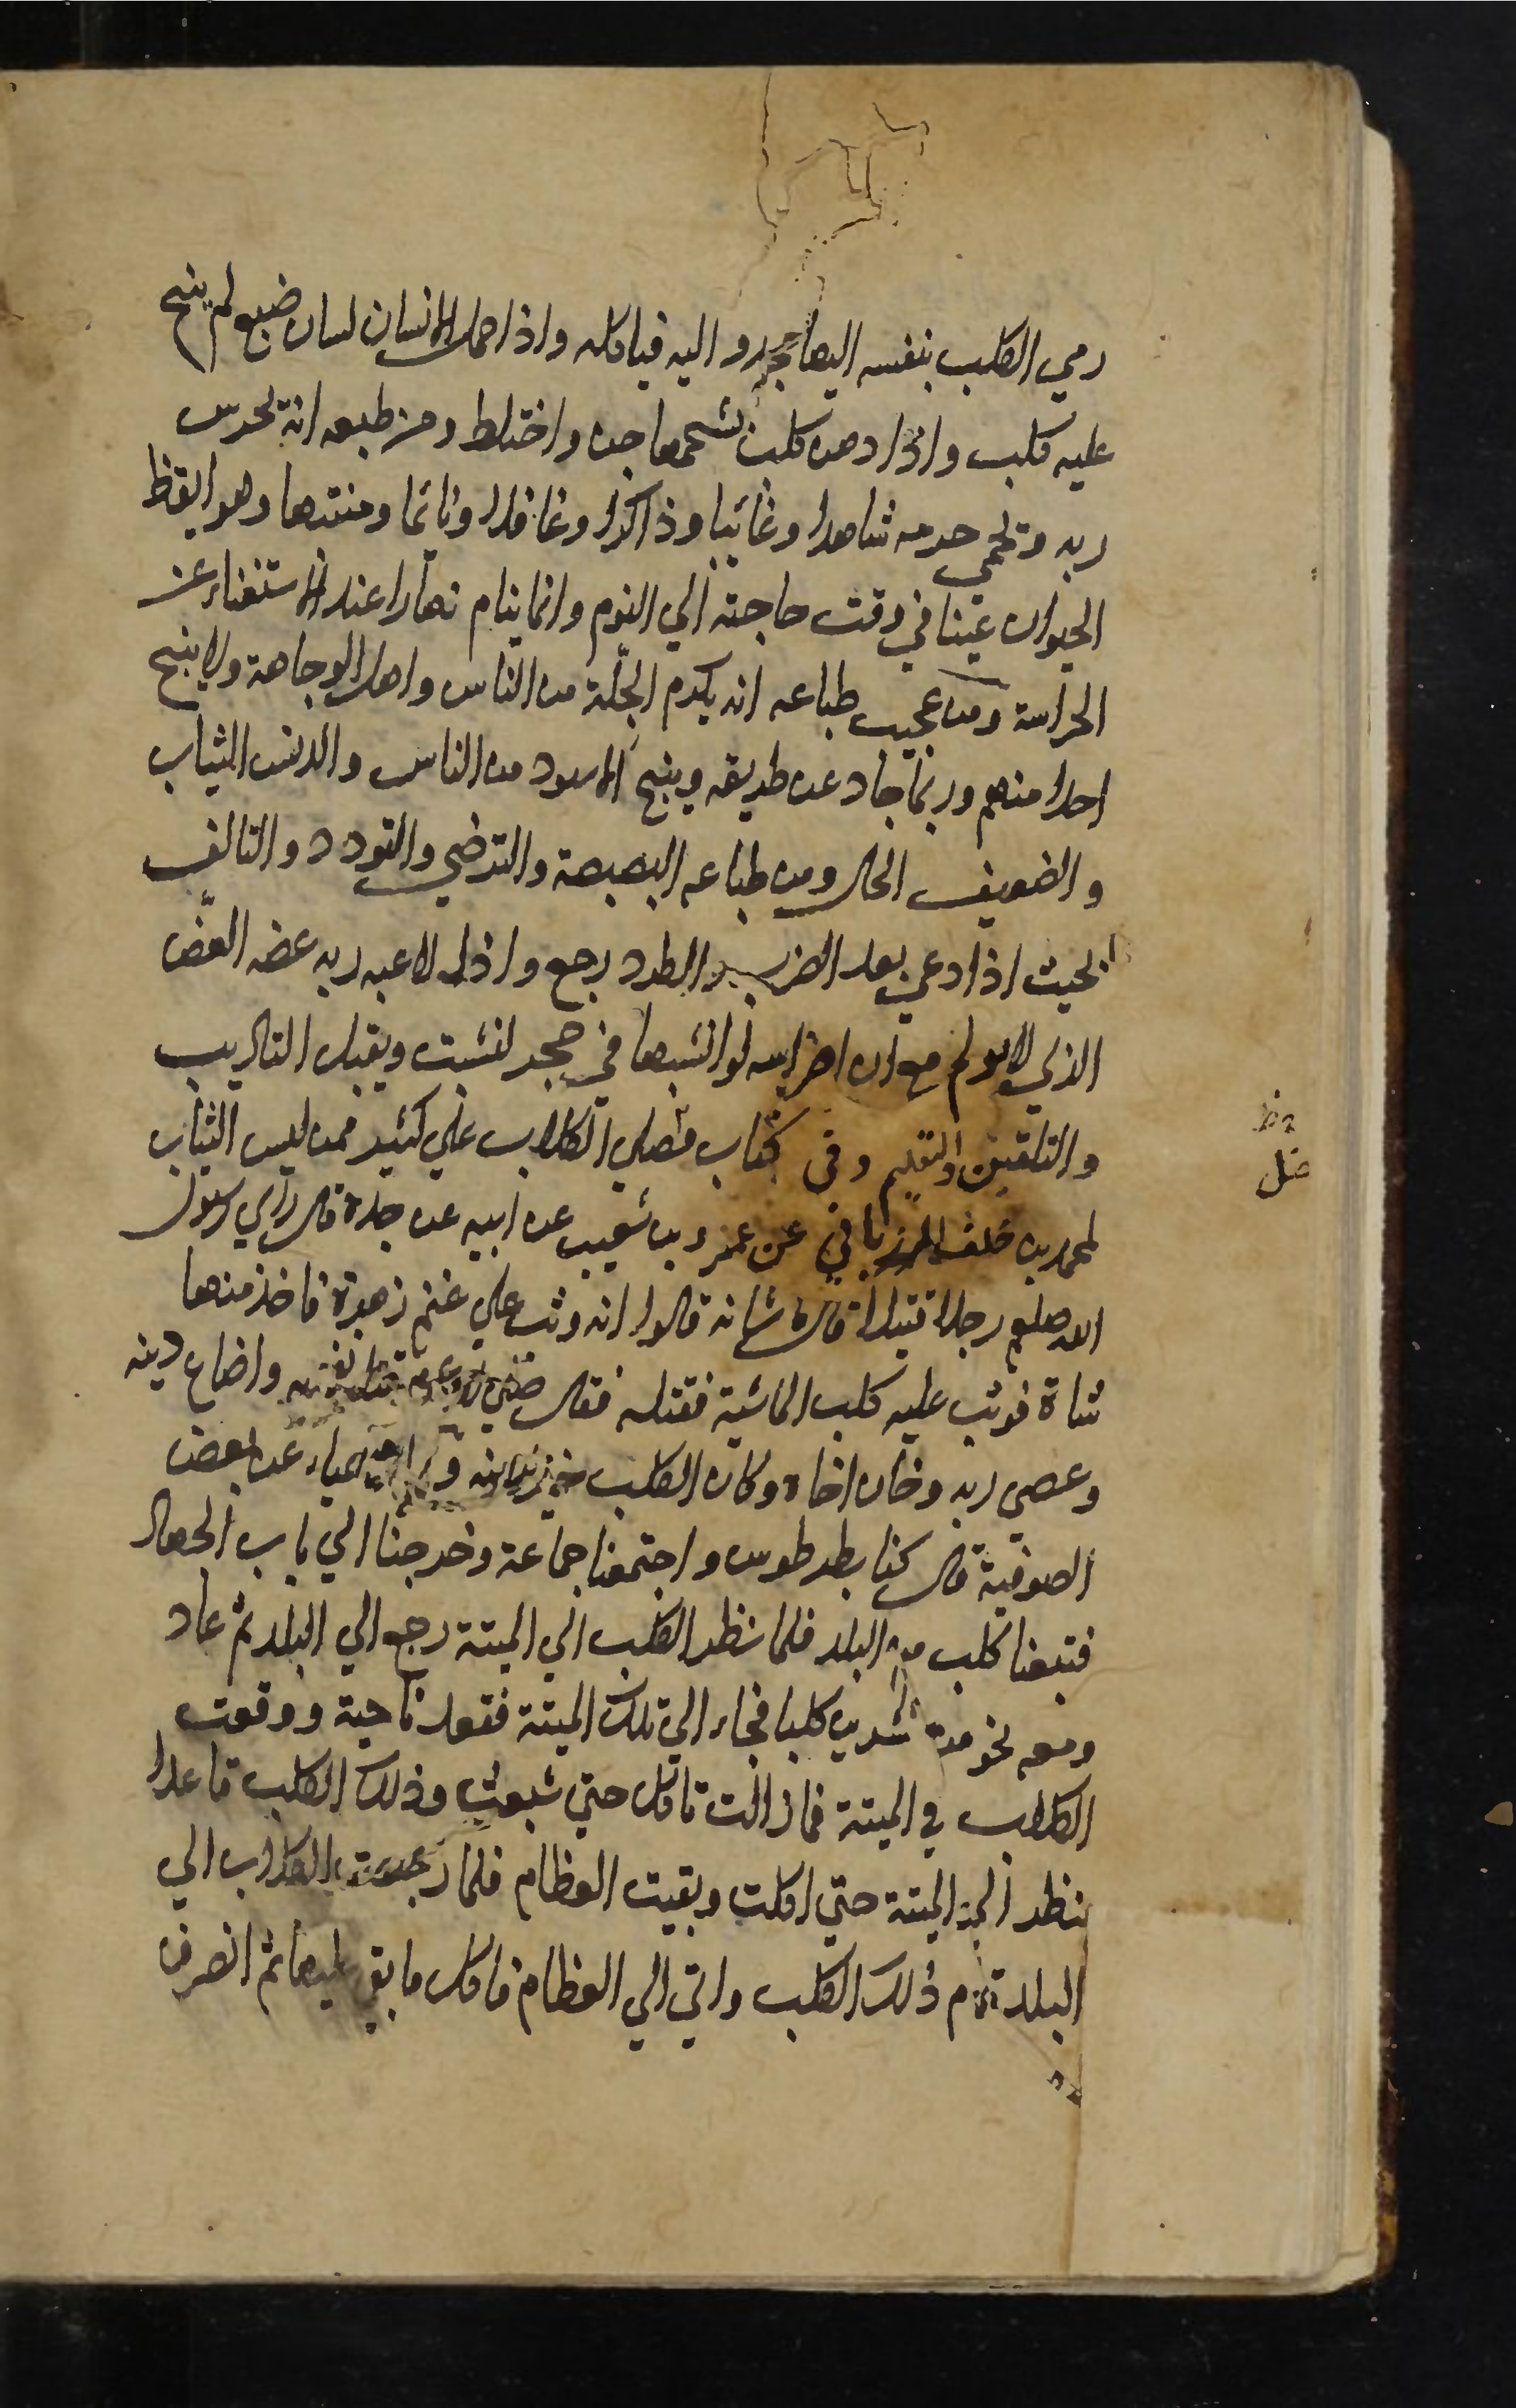 رمي الكلب بنفسه اليها مجرور اليه فياكله واذا حمل الانسان لسان ضبع لم ينبح
عليه كلب واذا دهن كلب بشحمها جن واختلط ومن طبعه انه يحرس
ربه ويحمي حرمه شاهدا وغائبا وذاكرا وغافلا ونائما ومنتبها وهو ايقظ
الحيوان عينا في وقت حاجته الي النوم وانما ينام نهارا عند الاستغناء عن
الحراسة ومن عجيب طباعه انه يكرم الجلّة من الناس واهل الوجاهة ولا ينبح
احدا منهم وربما حاد عن طريقه وينبح الاسود من الناس والدنس الثياب
والضعيف الحال ومن طباعه البصبصة والترضي والتودد والتالف
بحيث اذا دعي بعد الضرب والطرد رجع واذا لاعبه ربه عضه العضّ
الذي لا يولم مع ان اضراسه لو انشبها في حجر لنشبت ويقبل التاديب
والتلقين والتعليم وفي كتاب فضل الكلاب علي كثير ممن لبس الثياب
لمحمد بن خلف المرزباني عن عمرو بن شعيب عن ابيه عن جده قال راي رسول
الله صلعم رجلا قتيلا قال ما شانه قالوا انه وثب علي غنم زهرة فاخذ منها
شاة فوثب عليه كلب الماشية فقتله فقال صلي الله عليه وسلم قتل نفسه واضاع دينه
وعصي ربه وخان اخاه وكان الكلب خيرا منه وفي الاحياء عن بعض
الصوفية قال كنا بطرطوس واجتمعنا جماعة وخرجنا الي باب الجهاد
فتبعنا كلب من البلد فلما نظر الكلب الي الميتة رجع الي البلد ثم عاد
ومعه نحو من عشرين كلبا فجاء الي تلك الميتة فقعد ناحية ووقعت
الكلاب في الميتة فما زالت تاكل حتي شبعت وذلك الكلب قاعدا
ينظر الي الميتة حتي اكلت وبقيت العظام فلما رجعت الكلاب الي
البلد قام ذلك الكلب واتي الي العظام فاكل ما بقي عليها ثم انصرف